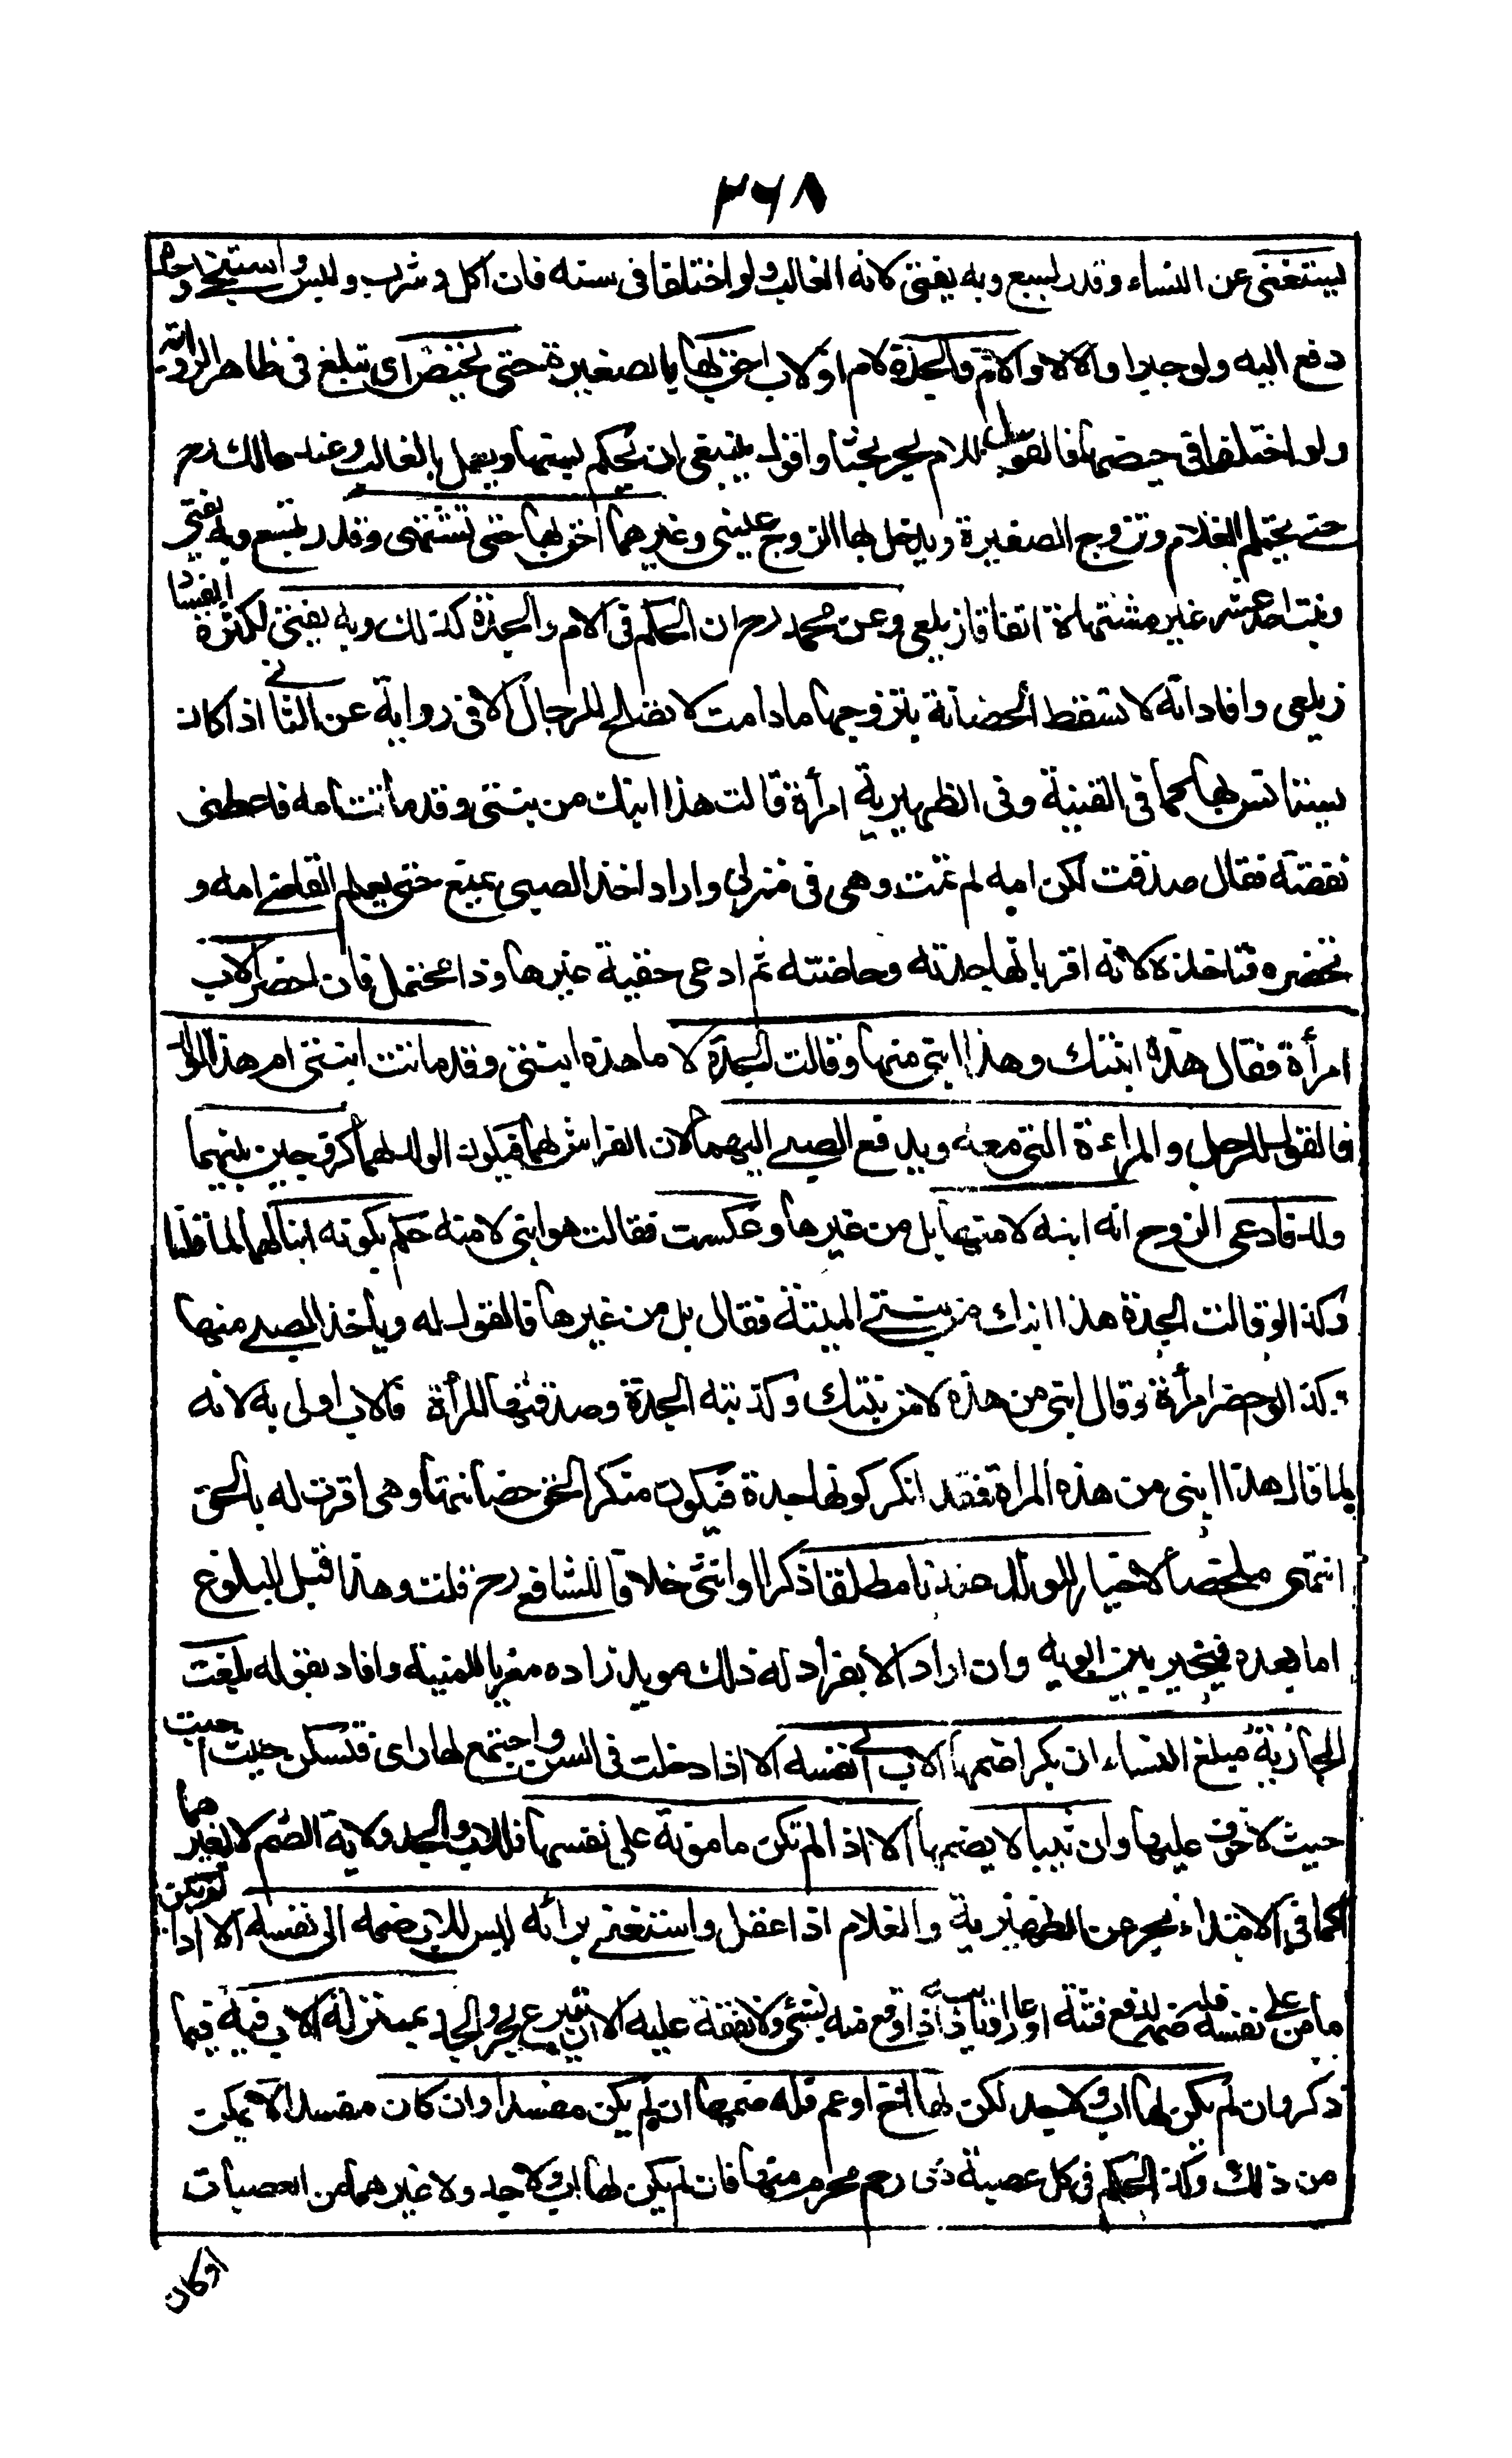 ٢٦٨
يستغنى عن النساء وقدر لسبع وبه يفتى لانه الغالب ولو اختلفا فى سنه فان اكل وشرب ولبس واستنجى وحده
دفع اليه ولو جبرا والا لا والام والجدة لام او لاب احق بها بالصغيرة حتى تحيض اى تبلغ فى ظاهر الرواية
ولو اختلفا فى حيضها فالقول للام بحر بحثا واقول ينبغى ان يحكم بسنها ويعمل بالغالب وعند مالك رح
حتى يحتلم الغلام وتزوج الصغيرة ويدخل بها الزوج عينى وغيرهما احق بها حتى تشتهى وقدر بتسع وبه يفتى
وبنت احدى عشر غير مشتهاة اتفاقا زيلعى وعن محمد رح ان الحكم فى الام والجدة كذلك وبه يفتى لكثرة الفساد
زيلعى وافاد انه لا تسقط الحضانة بتزوجها ما دامت لا تصلح للرجال الا فى رواية عن الثانى اذا كان
يستانس بها كما فى القنية وفى الظهيرية امرأة قالت هذا ابنك من بنتى وقد ماتت امه فاعطنى
نفقته فقال صدقت لكن امه لم تمت وهى فى منزلى واراد اخذ الصبى يمنع حتى يعلم القاضى امه و
تحضره فتاخذه لانه اقر بانها جدته وحاضنته ثم ادعى حقية غيرها وذا محتمل فان احضر الاب
امرأة فقال هذه ابنتك وهذا ابنى منها وقالت الجدة لا ما هذه ابنتى وقد ماتت ابنتى ام هذا الولد
فالقول للرجل والمراءة التى معه ويدفع الصبى اليهما لان الفراش لهما فيكون الولد لهما كزوجين بينهما
ولد فادعى الزوج انه ابنه لا منها بل من غيرها وعكست فقالت هو ابنى لا منه حكم بكونه ابنا لهما لما قلنا
وكذا لو قالت الجدة هذا ابنك من بنتى الميتة فقال بل من غيرها فالقول له وياخذ الصبى منها
وكذا لو حضر امرأة وقال ابنى من هذه لا من بنتك وكذبته الجدة وصدقتها المرأة فالاب اولى به لانه
لما قال هذا ابنى من هذه المراة فقد انكر كونها جدة فيكون منكرا لحق حضانتها وهى اقرت له بالحق
انتهى ملخصا لا خيار للولد عندنا مطلقا ذكرا او انثى خلافا للشافعى رح قلت وهذا قبل البلوغ
اما بعده فيخير بين ابويه وان اراد الانفراد له ذلك مويد زاده معزيا للمنية وافاد بقوله بلغت
الجارية مبلغ النساء ان بكرا ضمها الاب الى نفسه الا اذا دخلت فى السن واجتمع لها راى فتسكن حيث احبت
حيث لا خوف عليها وان ثيبا لا يضمها الا اذا لم تكن مامونة على نفسها فللاب والجد ولاية الضم لا لغيرهما
كما فى الابتداء بحر عن الظهيرية والغلام اذا عقل واستغنى برائه ليس للاب ضمه الى نفسه الا اذا لم يكن
مامن على نفسه فله ضمه لدفع فتنة او عار وتاديبه اذا وقع منه شئ ولا نفقة عليه الا ان يتبرع بحر والجد بمنزلة الاب فيه فيما
ذكر وان لم يكن لها اب ولا جد لكن لها اخ او عم فله ضمها ان لم يكن مفسدا وان كان مفسدا لا يمكن
من ذلك وكذا الحكم فى كل عصبة ذى رحم محرم منها فان لم يكن لها اب ولا جد ولا غيرهما من العصبات
او كان